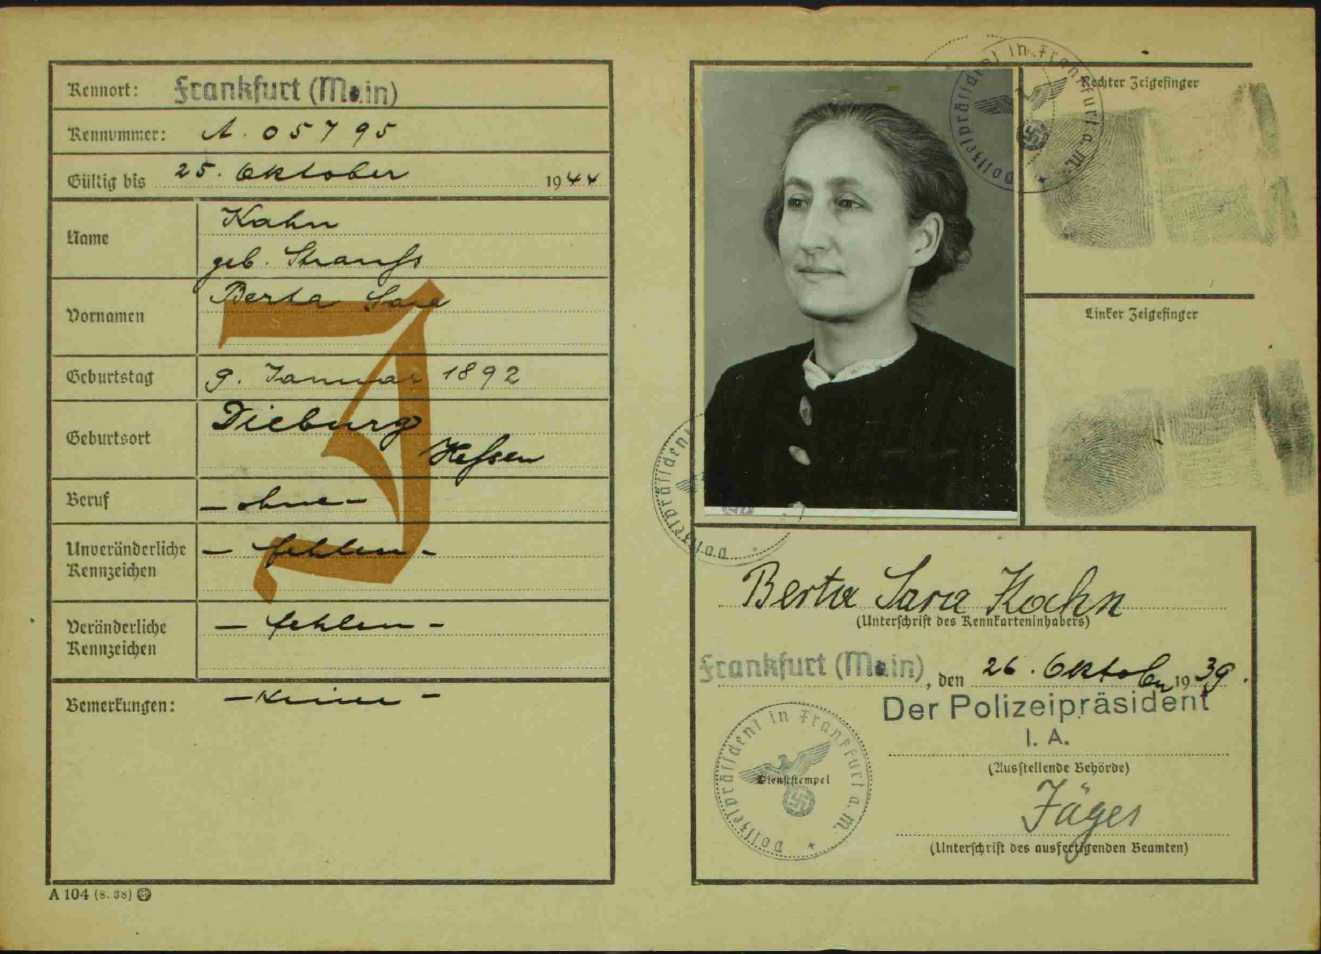 Kennort: Frankfurt (Main)
Kennummer: A. 05795
Gültig bis 25. Oktober 1944
Name Kahn
geb. Strauß
Vornamen Berta Sara
Geburtstag 9. Januar 1892
Geburtsort Dieburg
Hessen
Beruf - ohne -
Unveränderliche Kennzeichen - fehlen -
Veränderliche Kennzeichen - fehlen -
Bemerkungen: - Keine -
J
A 104 (8. 38)
Rechter Zeigefinger
Linker Zeigefinger
Polizeipräsident in Frankfurt a. M.
Polizeipräsident
Berta Sara Kahn
(Unterschrift des Kennkarteninhabers)
Frankfurt (Main), den 26. Oktober 1939.
Der Polizeipräsident
I. A.
(Ausstellende Behörde)
Jäger
(Unterschrift des ausfertigenden Beamten)
Polizeipräsident in Frankfurt a. M.
Dienststempel